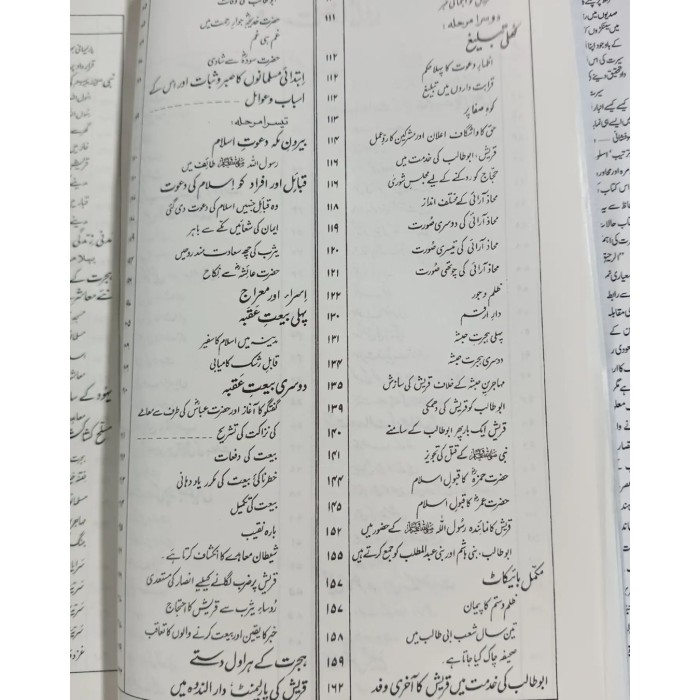 ۱۱۱
دوسرا مرحلہ:
کھلی تبلیغ
اظہارِ دعوت کا پہلا حکم ۱۱۲
قرابت داروں میں تبلیغ ۱۱۲
کوہِ صفا پر ۱۱۳
حق کا واشگاف اعلان اور مشرکین کا ردِّ عمل ۱۱۴
قریش، ابو طالب کی خدمت میں ۱۱۶
حُجّاج کو روکنے کے لیے مجلسِ شوریٰ ۱۱۶
محاذ آرائی کے مختلف انداز ۱۱۸
محاذ آرائی کی دوسری صورت ۱۱۹
محاذ آرائی کی تیسری صورت ۱۲۰
محاذ آرائی کی چوتھی صورت ۱۲۱
ظلم و جور ۱۲۲
دارِ ارقم ۱۳۰
پہلی ہجرتِ حبشہ ۱۳۱
دوسری ہجرتِ حبشہ ۱۳۴
مہاجرینِ حبشہ کے خلاف قریش کی سازش ۱۳۵
ابو طالب کو قریش کی دھمکی ۱۳۹
قریش ایک بار پھر ابو طالب کے سامنے ۱۴۰
نبی ﷺ کے قتل کی تجویز ۱۴۱
حضرت حمزہؓ کا قبولِ اسلام ۱۴۴
حضرت عمرؓ کا قبولِ اسلام ۱۴۵
قریش کا نمائندہ رسُول اللہ ﷺ کے حضور میں ۱۵۲
ابو طالب، بنی ہاشم اور بنی عبد المطلب کو جمع کرتے ہیں ۱۵۵
مکمل بائیکاٹ ۱۵۷
ظلم و ستم کا پیمان ۱۵۷
تین سال شعب ابی طالب میں ۱۵۸
صحیفہ چاک کیا جاتا ہے۔ ۱۵۹
ابو طالب کی خدمت میں قریش کا آخری وفد ۱۶۲
ابو طالب کی وفات
حضرت خدیجہؓ جوارِ رحمت میں
غم ہی غم
حضرت سودہؓ سے شادی
اِبتدائی مسلمانوں کا صبر و ثبات اور اس کے
اسباب و عوامل
تیسرا مرحلہ:
بیرونِ مکہ دعوتِ اسلام
رسول اللہ ﷺ طائف میں
قبائل اور افراد کو اِسلام کی دعوت
وہ قبائل جنہیں اسلام کی دعوت دی گئی
ایمان کی شعاعیں مکّے سے باہر
یثرب کی چھ سعادت مند روحیں
حضرت عائشہؓ سے نکاح
اِسراء اور معراج
پہلی بیعتِ عَقَبہ
مدینہ میں اسلام کا سفیر
قابلِ رشک کامیابی
دوسری بیعتِ عقبہ
گفتگو کا آغاز اور حضرت عباسؓ کی طرف سے معاملے
کی نزاکت کی تشریح
بیعت کی دفعات
خطرناکی بیعت کی مکرر یاد دہانی
بیعت کی تکمیل
بارہ نقیب
شیطان معاہدے کا انکشاف کرتا ہے۔
قریش پر ضرب لگانے کیلئے انصار کی مستعدی
رؤساءِ یثرب سے قریش کا احتجاج
خبر کا یقین اور بیعت کرنے والوں کا تعاقب
ہجرت کے ہراول دستے
قریش کی پارلیمنٹ دار الندوہ میں